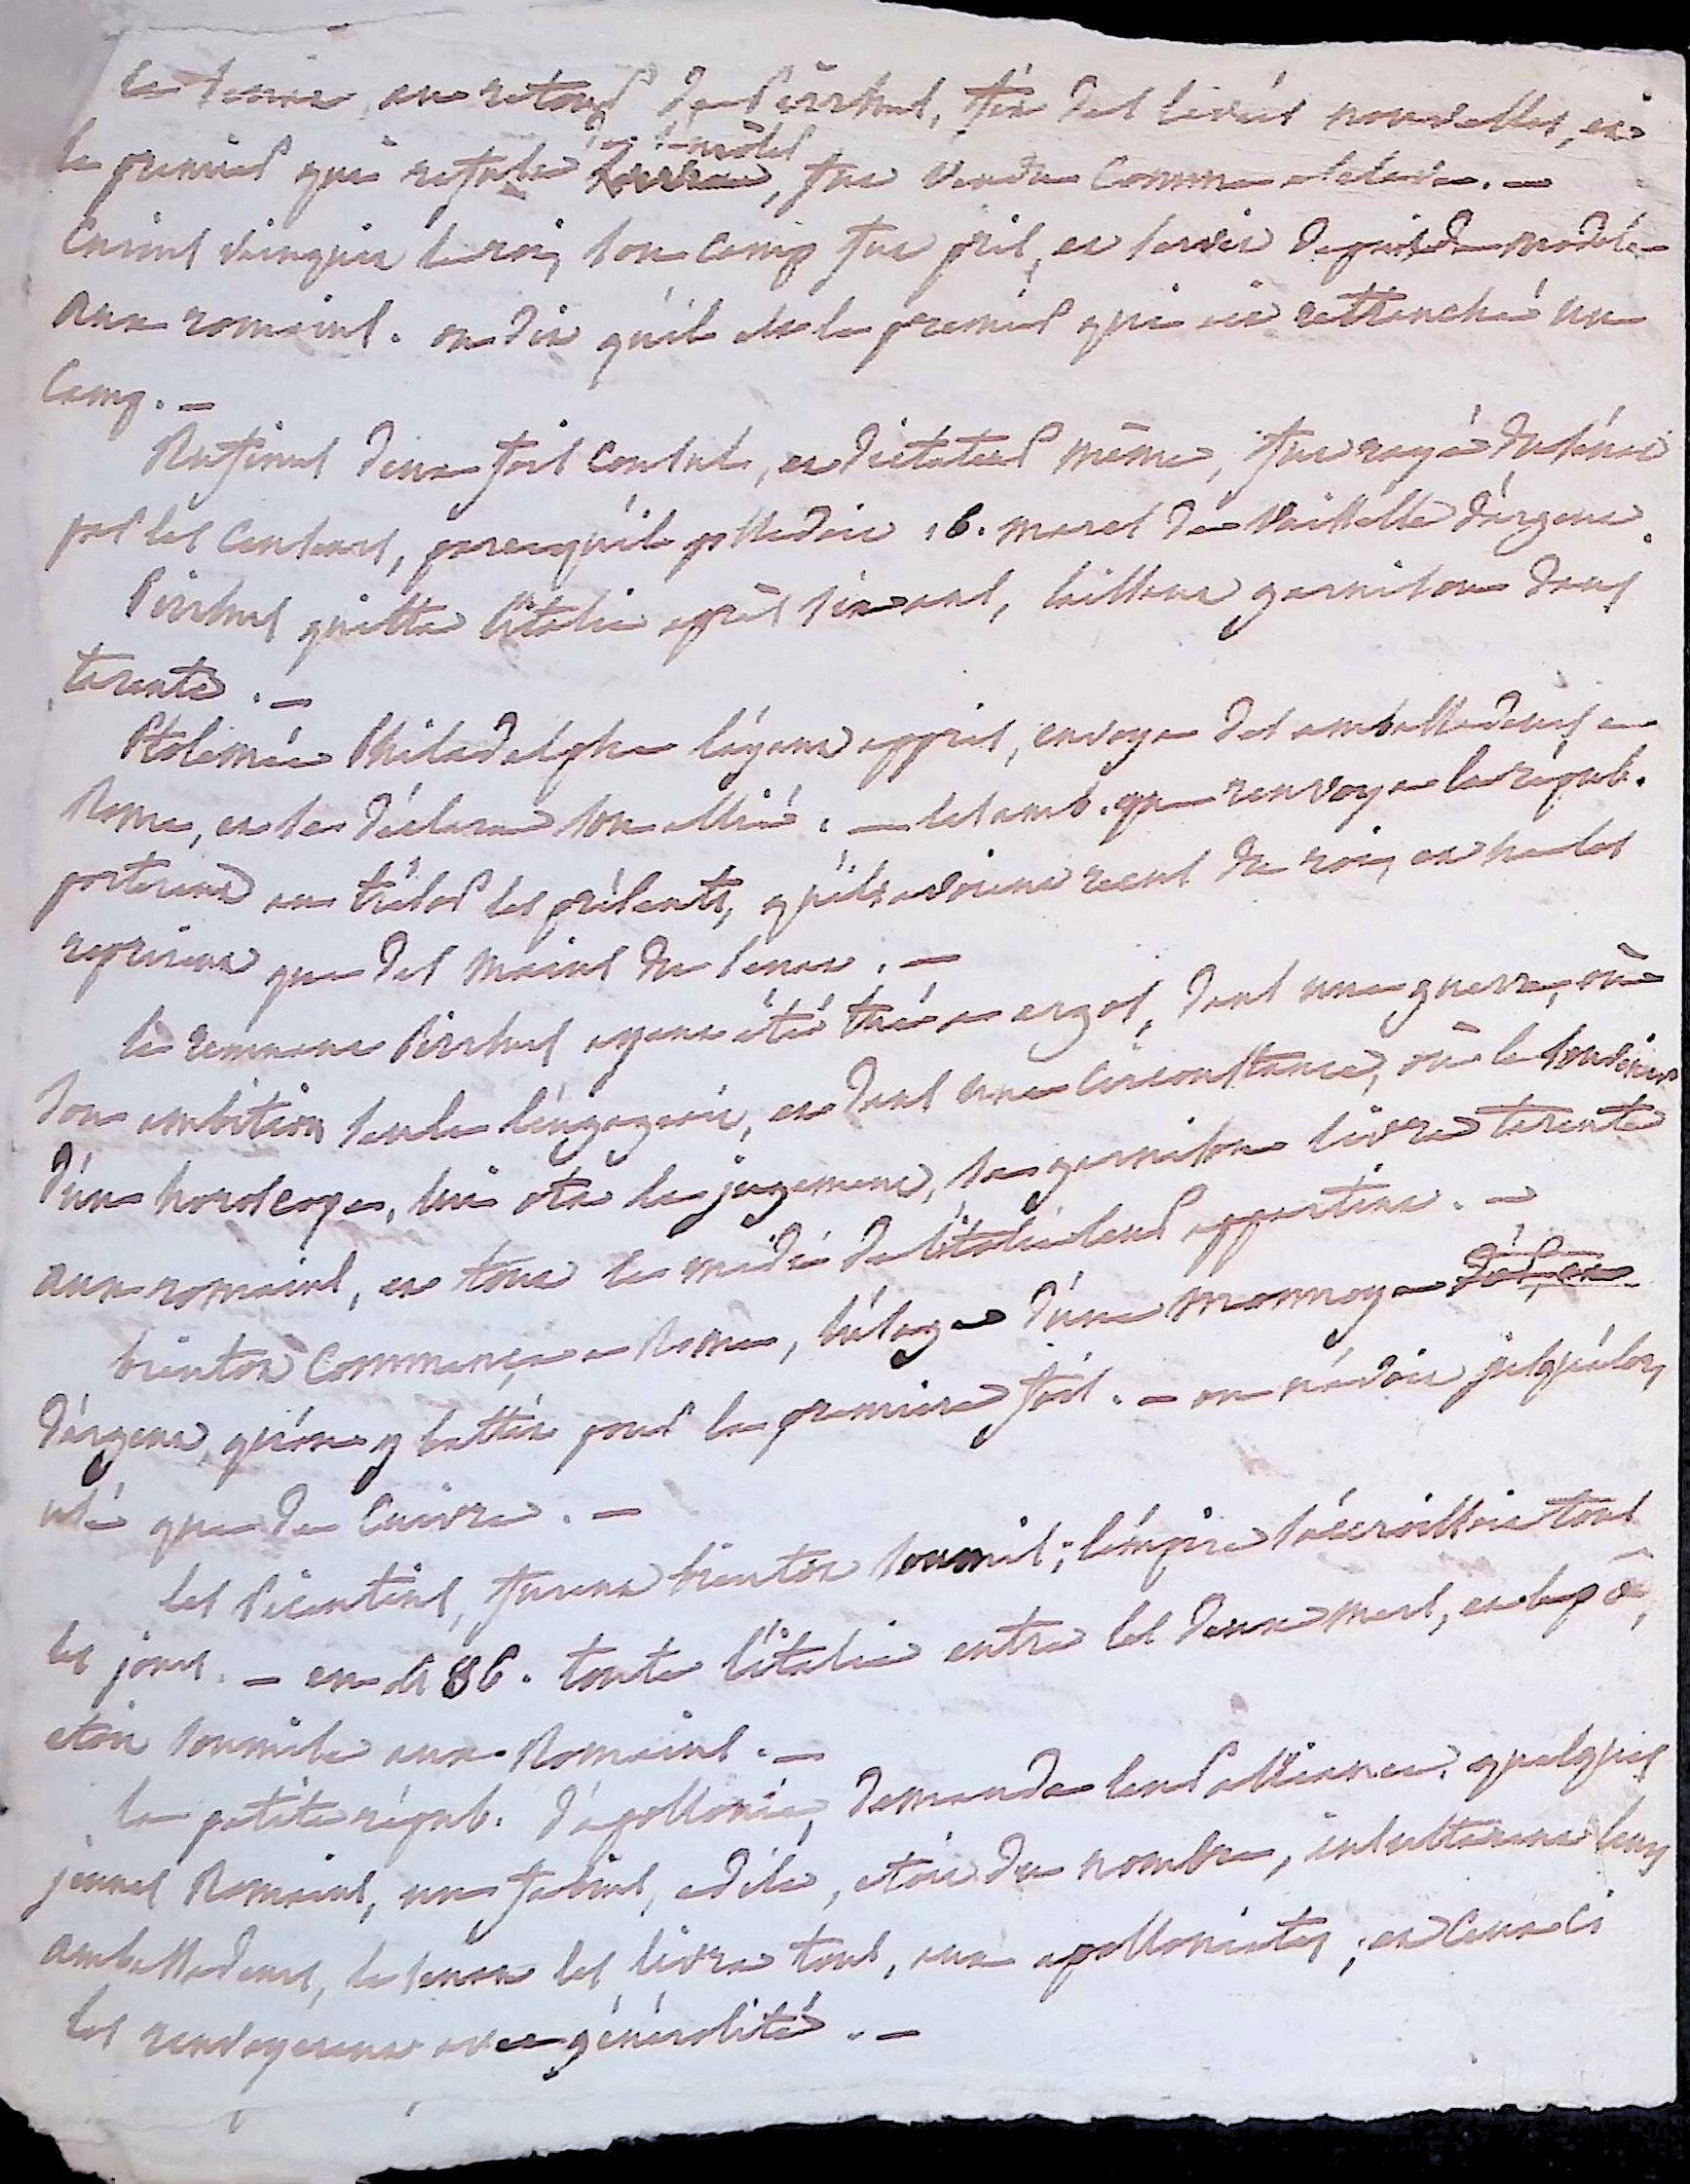 le senat, au retour de Pirrhus, fit des levées nouvelles, et
le premier qui refusa de s'enroler, fut vendu comme esclave. —
Curius vainquit le roi, son camp fut pris, et servit depuis de modele
aux romains. on dit qu'il est le premier qui ait rettranché un
camp. —
Rufinus deux fois consul, et dictateur même, fut rayé du sénat
par les censeurs, parcequ'il possedoit 16. marcs de vaisselle d'argent.
Pirrhus quitta l'italie après six ans, laissant garnison dans
tarente. —
Ptolemée Philadelphe l'ayant appris, envoya des ambassadeurs a
Rome, et se déclara son allié. — les amb. que renvoya la répub.
porterent au trésor les présents, qu'ils avoient recus du roi, et ne les
reprirent que des mains du senat. —
le remuant Pirrhus ayant été tué a argos, dans une guerre, où
son ambition seule l'engageoit, et dans une circonstance, où le souvenir
d'un horoscope, lui ota le jugement, sa garnison livra tarente
aux romains, et tout le midi de l'italie leur appartint. —
bientôt commença a Rome, l'usage d'une monnoye
d'argent, qu'on y battit pour la premiere fois. — on n'avoit jusqu'alors
usé que de cuivre. —
les Picentins, furent bientôt soumis; l'empire s'accroissoit tous
les jours. — en 486. toute l'italie entre les deux mers, et le pô,
etoit soumise aux Romains. —
la petite répub. d'apollonie, demanda leur alliance. quelques
jeunes Romains, un fabius, edile, etoit du nombre, insulterent leurs
ambassadeurs, le senat les livra tous, aux apolloniates; et ceux ci
les renvoyerent avec générosité. —